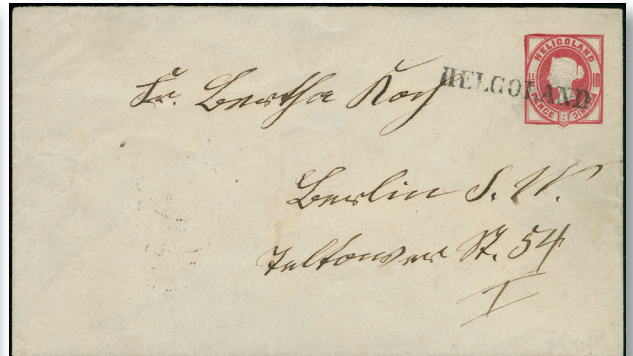 HELIGOLAND
HELGOLAND
Fr. Bertha Koch
Berlin S. W.
Teltower St. 54
I